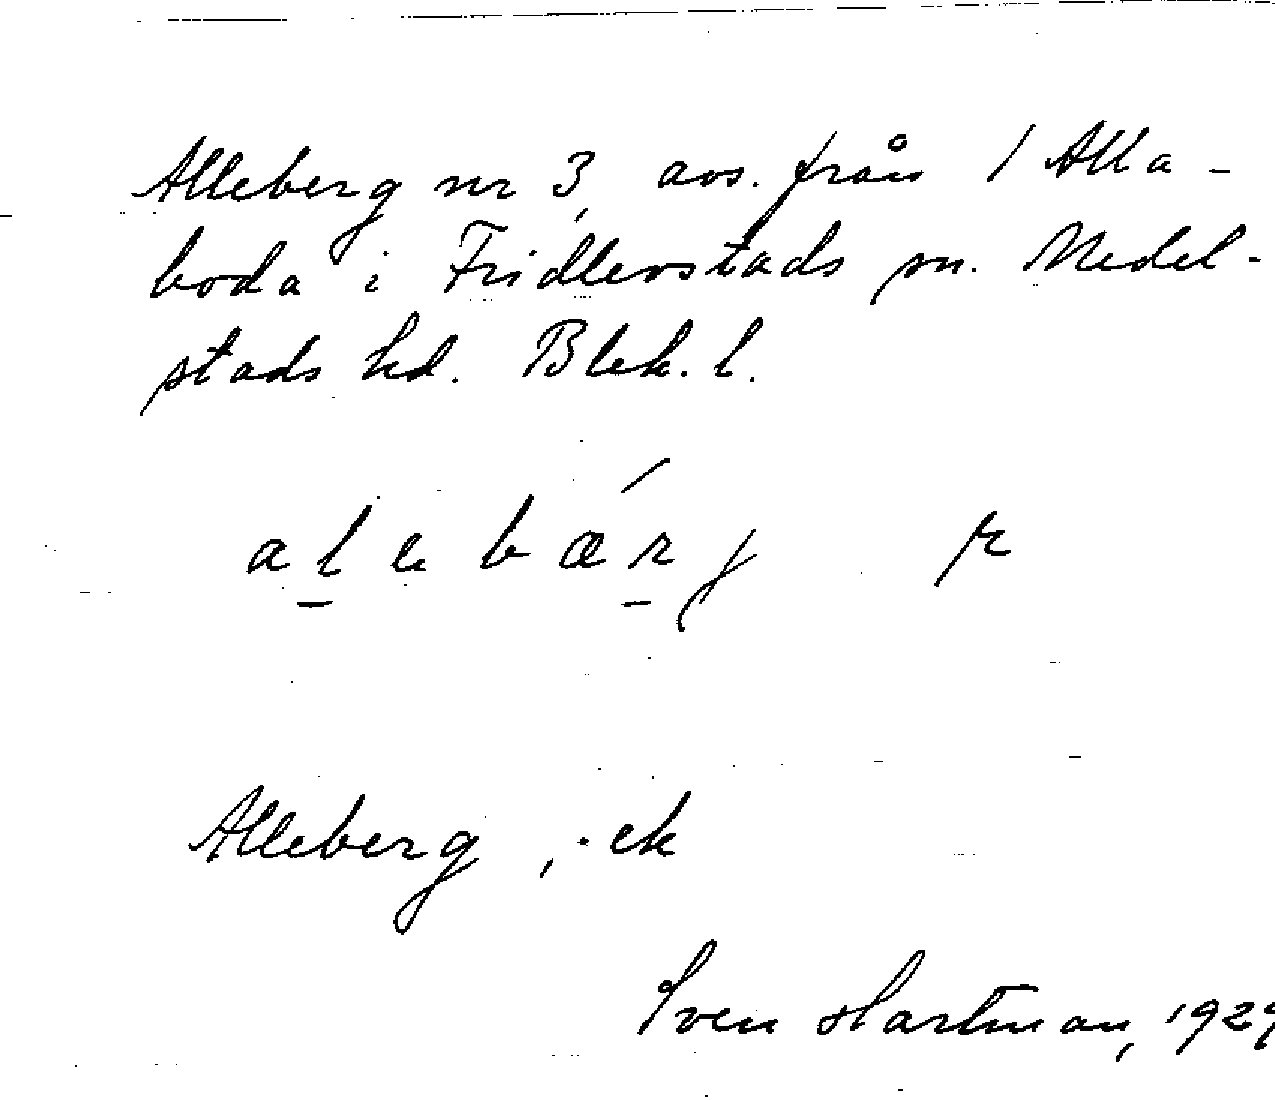 Alleberg nr 3, avs. från 1 Alla-
boda i Fridlevstads sn. Medel-
stads hd. Blek. l.
alebærj
Alleberg, ek
Sven Hartman, 1929